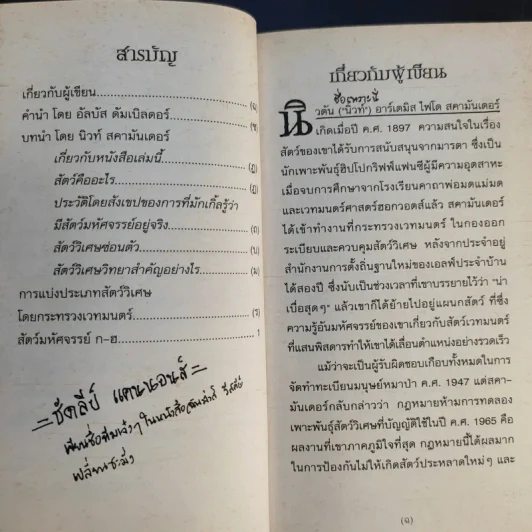 สารบัญ
เกี่ยวกับผู้เขียน (ฉ)
คำนำ โดย อัลบัส ดัมเบิลดอร์ (ซ)
บทนำ โดย นิวท์ สคามันเดอร์
เกี่ยวกับหนังสือเล่มนี้ (ฎ)
สัตว์คืออะไร (ฏ)
ประวัติโดยสังเขปของการที่มักเกิ้ลรู้ว่า
มีสัตว์มหัศจรรย์อยู่จริง (ถ)
สัตว์วิเศษซ่อนตัว (บ)
สัตว์วิเศษวิทยาสำคัญอย่างไร (ม)
การแบ่งประเภทสัตว์วิเศษ
โดยกระทรวงเวทมนตร์ (ร)
สัตว์มหัศจรรย์ ก-ฮ 1
= ชัดลีย์ แคนนอนส์ =
เกี่ยวกับผู้เขียน
นิวตัน ("นิวท์") อาร์เตมิส ไฟโด สคามันเดอร์
เกิดเมื่อปี ค.ศ. 1897 ความสนใจในเรื่อง
สัตว์ของเขาได้รับการสนับสนุนจากมารดา ซึ่งเป็น
นักเพาะพันธุ์ฮิปโปกริฟฟ์แฟนซีผู้มีความอุตสาหะ
เมื่อจบการศึกษาจากโรงเรียนคาถาพ่อมดแม่มด
และเวทมนตร์ศาสตร์ฮอกวอตส์แล้ว สคามันเดอร์
ได้เข้าทำงานที่กระทรวงเวทมนตร์ ในกองออก
ระเบียบและควบคุมสัตว์วิเศษ หลังจากประจำอยู่
สำนักงานการตั้งถิ่นฐานใหม่ของเอลฟ์ประจำบ้าน
ได้สองปี ซึ่งนับเป็นช่วงเวลาที่เขาบรรยายไว้ว่า "น่า
เบื่อสุดๆ" แล้วเขาก็ได้ย้ายไปอยู่แผนกสัตว์ ที่ซึ่ง
ความรู้อันมหัศจรรย์ของเขาเกี่ยวกับสัตว์เวทมนตร์
ที่แสนพิสดารทำให้เขาได้เลื่อนตำแหน่งอย่างรวดเร็ว
แม้ว่าจะเป็นผู้รับผิดชอบเกือบทั้งหมดในการ
จัดทำทะเบียนมนุษย์หมาป่า ค.ศ. 1947 แต่สคา-
มันเดอร์กลับกล่าวว่า กฎหมายห้ามการทดลอง
เพาะพันธุ์สัตว์วิเศษที่บัญญัติใช้ในปี ค.ศ. 1965 คือ
ผลงานที่เขาภาคภูมิใจที่สุด กฎหมายนี้ได้ผลมาก
ในการป้องกันไม่ให้เกิดสัตว์ประหลาดใหม่ๆ และ
(ฉ)